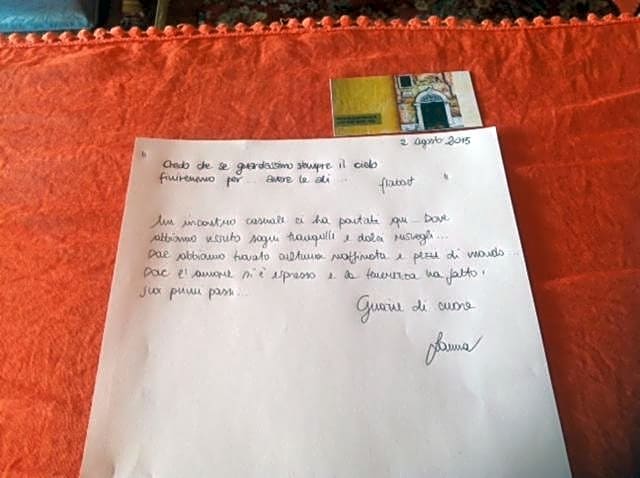 2 agosto 2015
" Credo che se guardassimo sempre il cielo
finiremmo per... avere le ali...
"
Un incontro casuale ci ha portati qui... Dove
abbiamo vissuto sogni tranquilli e dolci risvegli...
Dove abbiamo trovato cultura raffinata e pezzi di mondo...
Dove l'amore si è espresso e la tenerezza ha fatto i
suoi primi passi...
Grazie di cuore